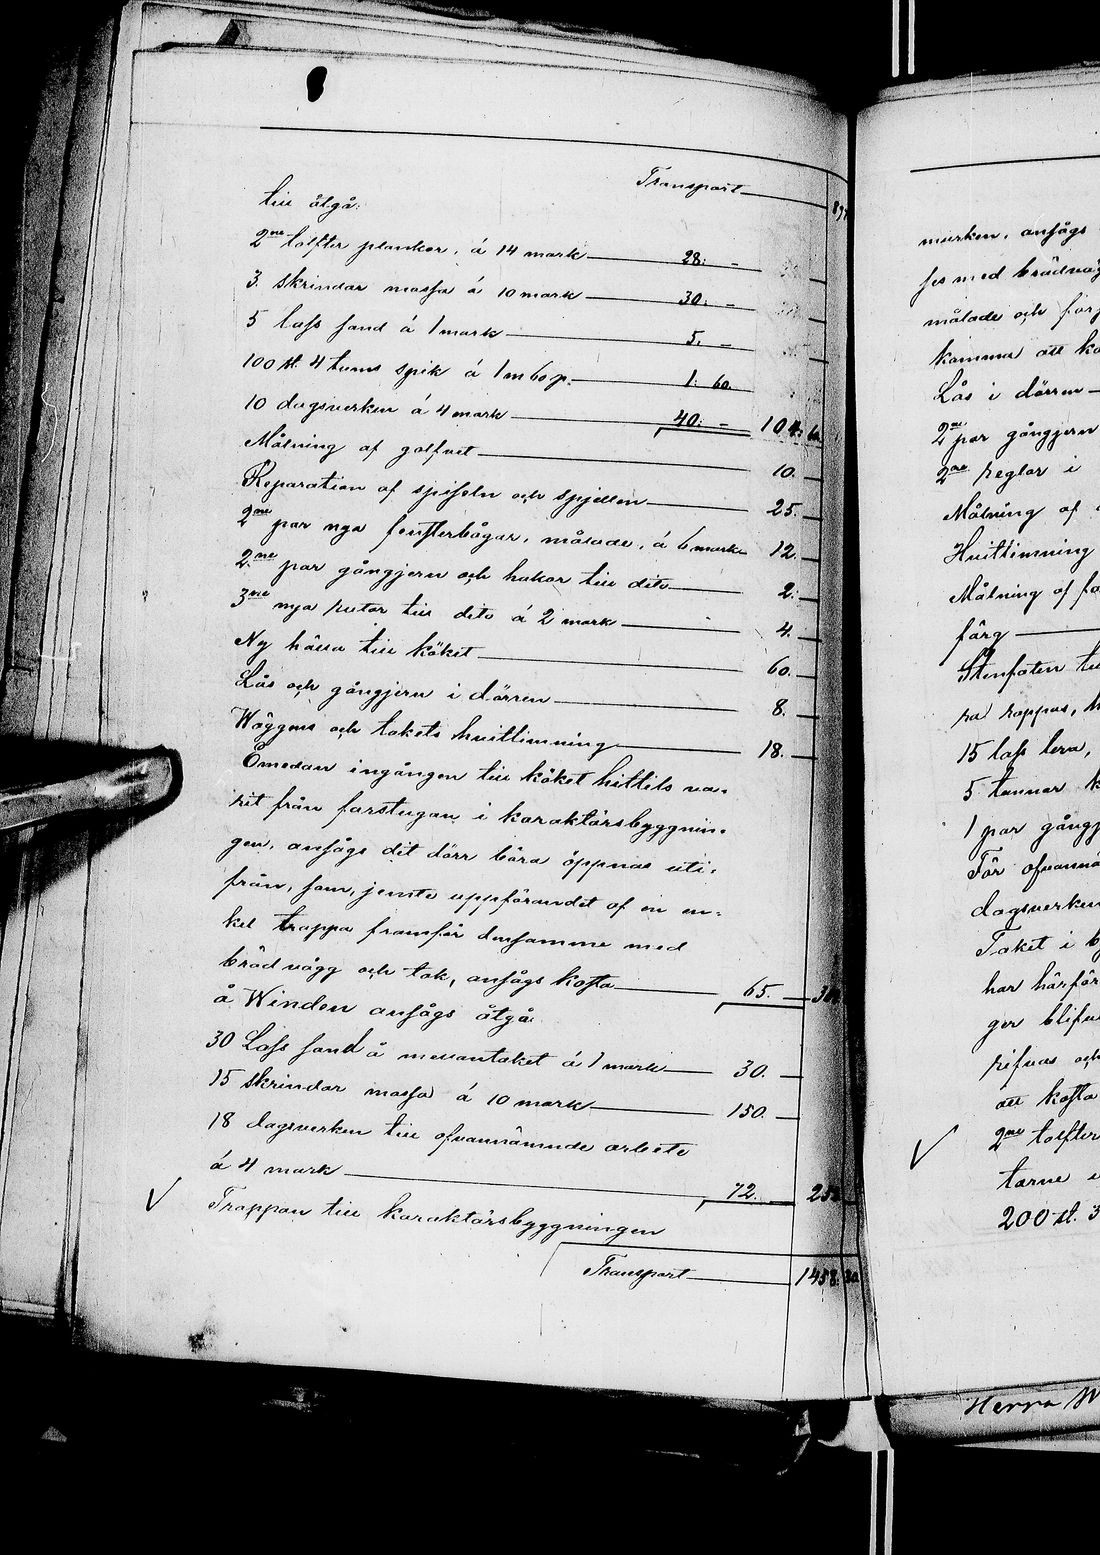 Transport 897
till åtgå:
2ne tolfter plankor, á 14 mark 28: -
3. skrindar mossa á 10 mark 30: -
5 lass sand á 1 mark 5. -
100 st. 4 tums spik á 1 m 60 p. 1: 60.
10 dagsverken á 4 mark 40: - 104. 60
Målning af golfvet 10. -
Reparation af spiseln och spjellen 25. -
2ne par nya fensterbågar, målade, á 6 mark 12. -
2.ne par gångjern och hakar till dito 2. -
3ne nya rutor till dito á 2 mark 4. -
Ny hälla till köket 60. -
Lås och gångjern i dörren 8. -
Wäggens och takets hvittimning 18. -
Emedan ingången till köket hittils va-
rit från farstugan i karaktärsbyggnin-
gen, ansågs dit dörr böra öppnas uti-
från, som, jemte uppförandet af en en-
kel trappa framför densamme med
brädvägg och tak, ansågs kosta 65. -
å Winden ansågs åtgå
30 Lass sand å mellantaket á 1 mark 30. -
15 skrindar mossa á 10 mark 150. -
18 dagsverken till ofvannämnde arbete
á 4 mark 72. - 252
Trappan till karaktärsbyggningen
Transport 1458.
marken, ansågs
ses med brädväg
målade och för
komma att ko
Lås i dörren
2ne par gångjern
2ne reglar i
Målning af
Hvittimning
Målning af fo
färg
Stenfoten till
ra rappas,
15 lass lera,
5 tunnor k
1 par gångj
För ofvannä
dagsverken
Taket i
har härför
ger blifv
rifvas och
att kosta
2ne tolfter
tarne
200 st. 3
Herra